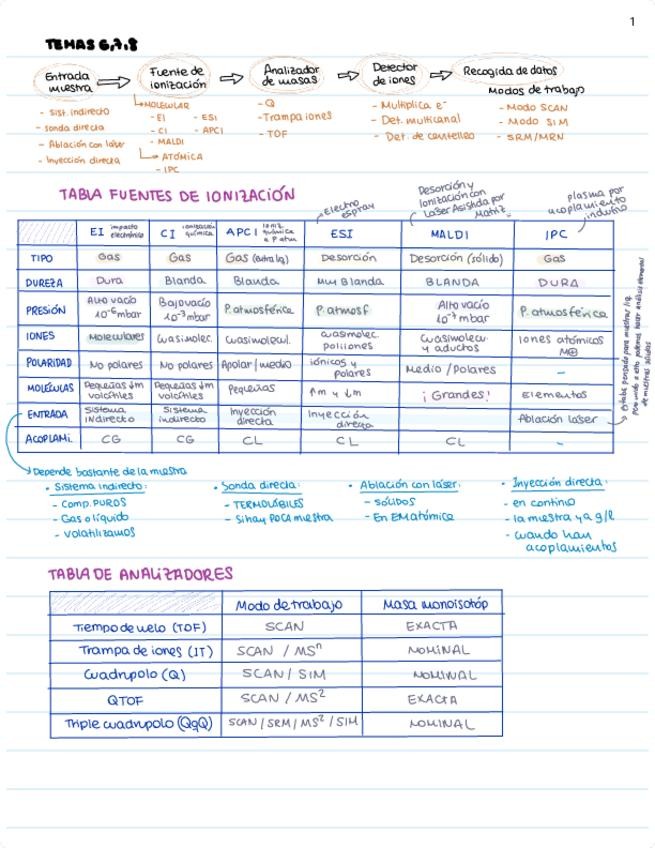 1
TEMAS 6,7,8
Entrada muestra ⇒ Fuente de ionización ⇒ Analizador de masas ⇒ Detector de iones ⇒ Recogida de datos
Modos de trabajo
- Sist. indirecto
- sonda directa
- Ablación con láser
- Inyección directa
MOLECULAR
- EI - ESI
- CI - APCI
- MALDI
ATÓMICA
- IPC
- Q
- Trampa iones
- TOF
- Multiplica e⁻
- Det. multicanal
- Det. de centelleo
- Modo SCAN
- Modo SIM
- SRM/MRN
TABLA FUENTES DE IONIZACIÓN
Electro espray
Desorción y Ionización con Láser Asistida por Matriz
plasma por acoplamiento inductivo
EI impacto electrónico | CI ionización química | APCI ioniz química a P atm | ESI | MALDI | IPC
TIPO | Gas | Gas | Gas (extra lq) | Desorción | Desorción (sólido) | Gas
DUREZA | Dura | Blanda | Blanda | Muy Blanda | BLANDA | DURA
PRESIÓN | Alto vacío 10⁻⁶ mbar | Bajo vacío 10⁻³ mbar | P. atmosférica | P. atmosf | Alto vacío 10⁻⁷ mbar | P. atmosférica
IONES | Moleculares | Cuasimolec. | Cuasimolecul. | cuasimolec. poliiones | Cuasimolecu y aductos | Iones atómicos M⊕
POLARIDAD | No polares | No polares | Apolar/medio | iónicos y polares | Medio/Polares | -
MOLÉCULAS | Pequeñas ↓m volátiles | Pequeñas ↓m volátiles | Pequeñas | ↑m y ↓m | ¡Grandes! | Elementos
ENTRADA | Sistema Indirecto | Sistema indirecto | Inyección directa | Inyección directa | | Ablación láser
ACOPLAMI. | CG | CG | CL | CL | CL | -
Estaba pensado para muestras líq. pero unido a esto podemos hacer análisis elemental de muestras sólidas
Depende bastante de la muestra
• Sistema indirecto:
- Comp. PUROS
- Gas o líquido
- Volatilizamos
• Sonda directa:
- TERMOLÁBILES
- Si hay POCA muestra
• Ablación con láser:
- SÓLIDOS
- En EM atómica
• Inyección directa:
- en continuo
- la muestra ya g/l
- cuando hay acoplamientos
TABLA DE ANALIZADORES
Modo de trabajo | Masa monoisotóp
Tiempo de vuelo (TOF) | SCAN | EXACTA
Trampa de iones (IT) | SCAN / MSⁿ | NOMINAL
Cuadrupolo (Q) | SCAN / SIM | NOMINAL
QTOF | SCAN / MS² | EXACTA
Triple cuadrupolo (QqQ) | SCAN / SRM / MS² / SIM | NOMINAL